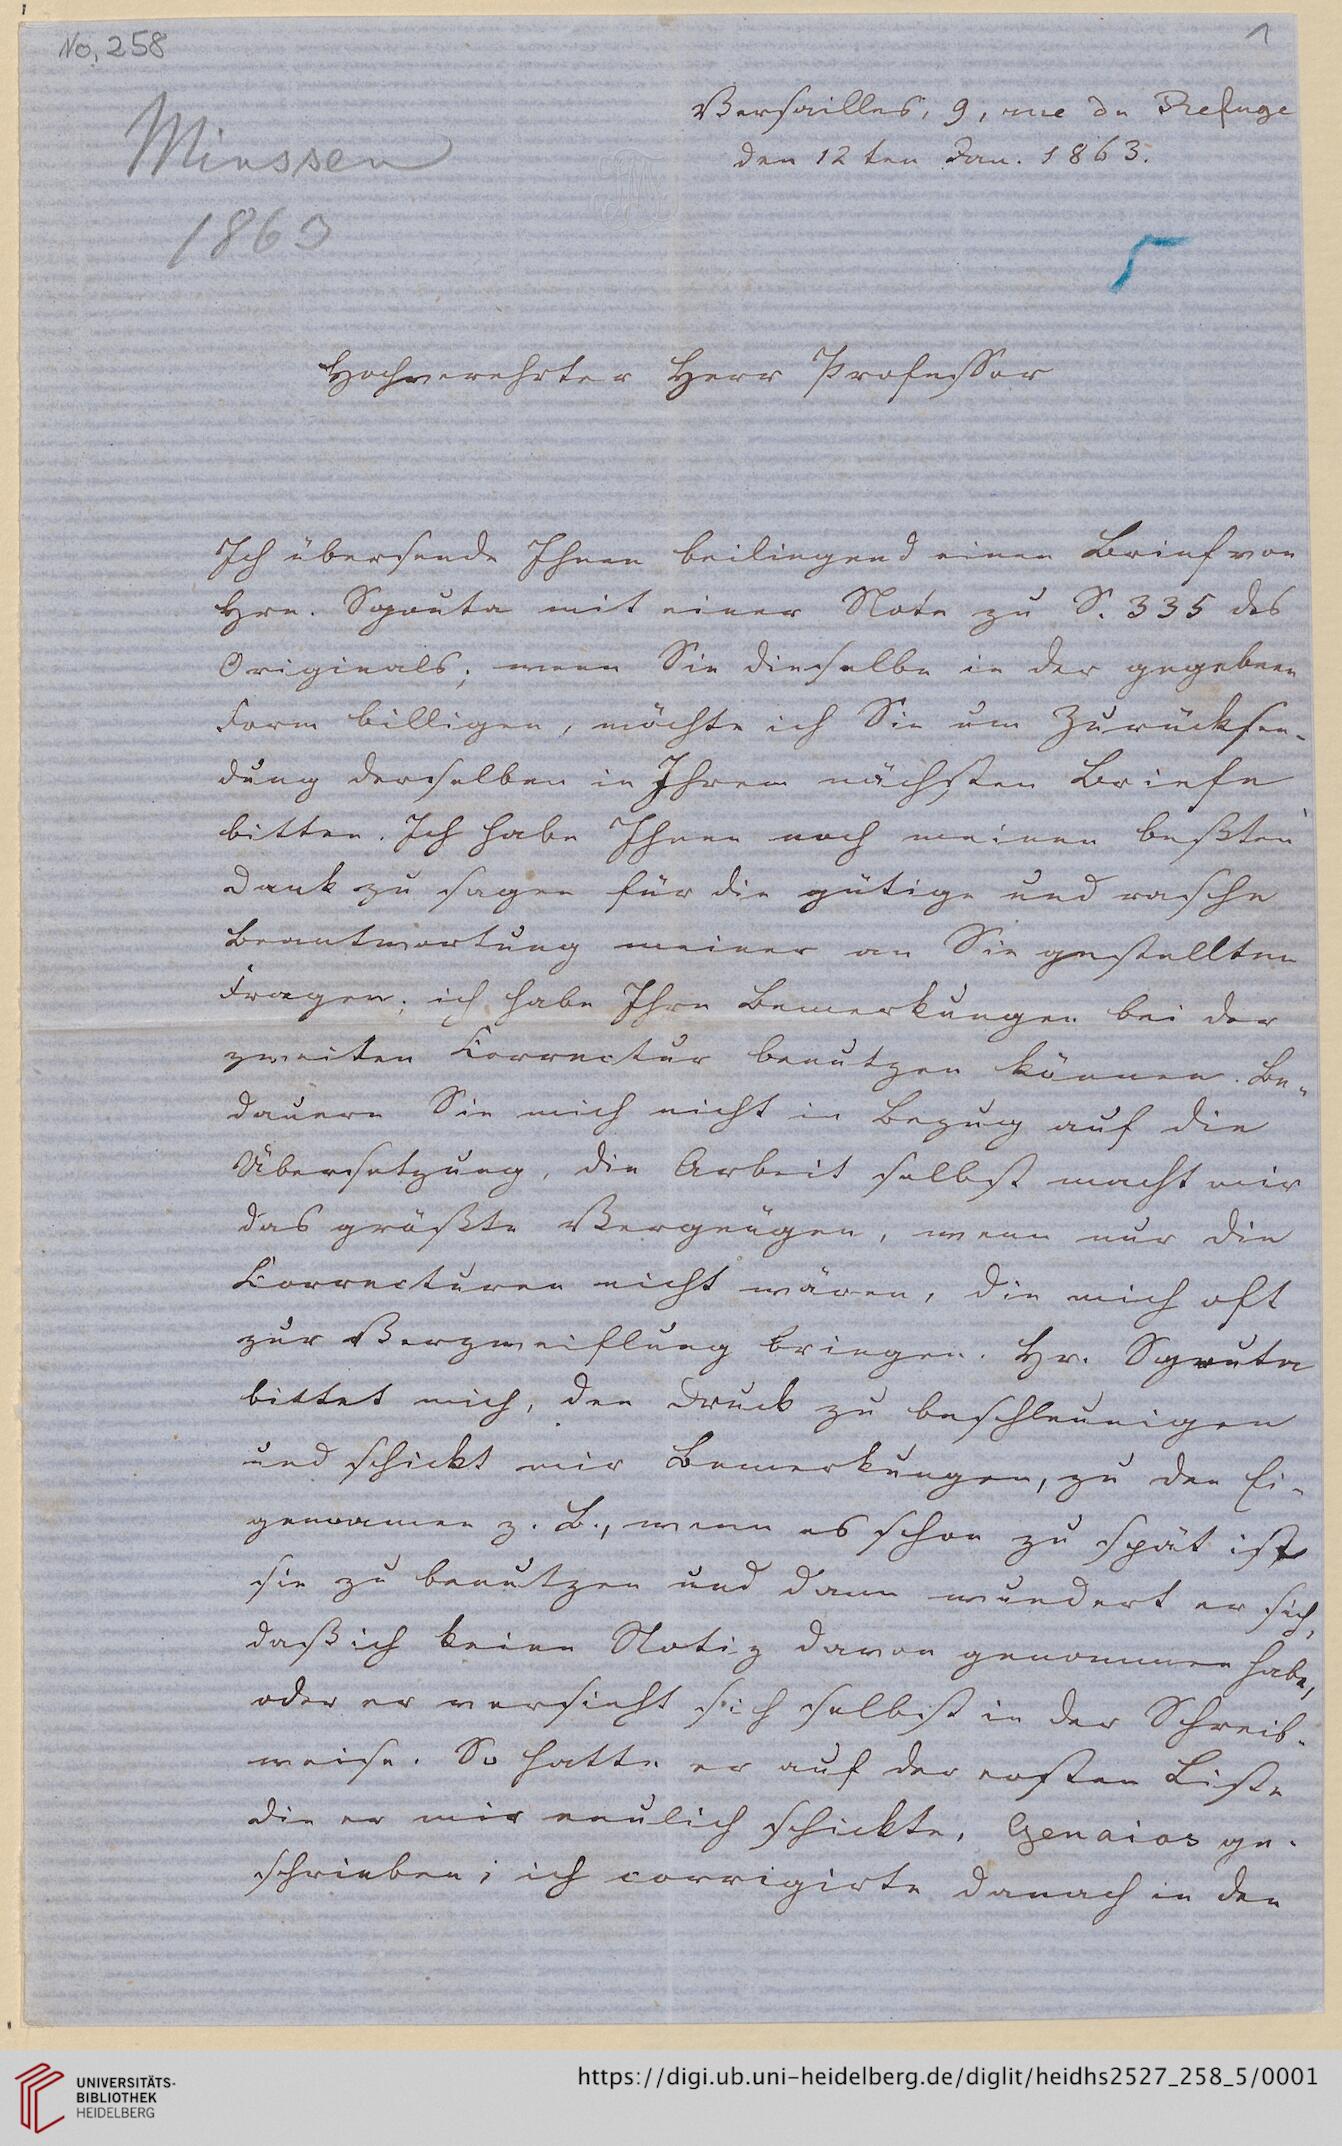 No, 258
1
Minssen
1863
Versailles, 9, rue du Refuge
den 12ten Jan. 1863.
5
Hochverehrter Herr Professor
Ich übersende Ihnen beiliegend einen Brief von
Hrn. Sgouta mit einer Note zu S. 335 des
Originals; wenn Sie dieselbe in der gegebenen
Form billigen, möchte ich Sie um Zurücksen-
dung derselben in Ihrem nächsten Briefe
bitten. Ich habe Ihnen noch meinen beßten
Dank zu sagen für die gütige und rasche
Beantwortung meiner an Sie gestellten
Fragen; ich habe Ihre Bemerkungen bei der
zweiten Correctur benutzen können. Be-
dauern Sie mich nicht in Bezug auf die
Übersetzung, die Arbeit selbst macht mir
das größte Vergnügen, wenn nur die
Correcturen nicht wären, die mich oft
zur Verzweiflung bringen. Hr. Sgouta
bittet mich, den Druck zu beschleunigen
und schickt mir Bemerkungen, zu den Ei-
gennamen z. B., wenn es schon zu spät ist
sie zu benutzen und dann wundert er sich,
daß ich keine Notiz davon genommen habe,
oder er versieht sich selbst in der Schreib-
weise. So hatte er auf der ersten Liste
die er mir neulich schickte, Genaios ge-
schrieben; ich corrigirte danach in den
UNIVERSITÄTS-
BIBLIOTHEK
HEIDELBERG
https://digi.ub.uni-heidelberg.de/diglit/heidhs2527_258_5/0001